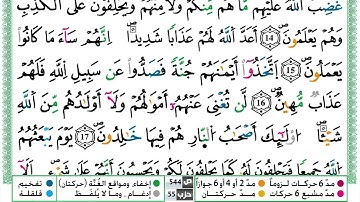 غَضِبَ ٱللَّهُ عَلَيْهِم مَّا هُم مِّنكُمْ وَلَا مِنْهُمْ وَيَحْلِفُونَ عَلَى ٱلْكَذِبِ
وَهُمْ يَعْلَمُونَ 14 أَعَدَّ ٱللَّهُ لَهُمْ عَذَابًا شَدِيدًا ۖ إِنَّهُمْ سَآءَ مَا كَانُوا۟
يَعْمَلُونَ 15 ٱتَّخَذُوٓا۟ أَيْمَٰنَهُمْ جُنَّةً فَصَدُّوا۟ عَن سَبِيلِ ٱللَّهِ فَلَهُمْ
عَذَابٌ مُّهِينٌ 16 لَّن تُغْنِىَ عَنْهُمْ أَمْوَٰلُهُمْ وَلَآ أَوْلَٰدُهُم مِّنَ ٱللَّهِ
شَيْـًٔا ۚ أُو۟لَٰٓئِكَ أَصْحَٰبُ ٱلنَّارِ ۖ هُمْ فِيهَا خَٰلِدُونَ 17 يَوْمَ يَبْعَثُهُمُ
ٱللَّهُ جَمِيعًا فَيَحْلِفُونَ لَهُۥ كَمَا يَحْلِفُونَ لَكُمْ ۖ وَيَحْسَبُونَ أَنَّهُمْ عَلَىٰ شَىْءٍ ۚ أَلَآ
مدّ 6 حركات لزوماً مدّ 2 أو 4 أو 6 جوازاً ص 544 إخفاء، ومواقع الغُنَّة (حركتان) تفخيم
مدّ مشبع 6 حركات مدّ حركتان حزب 55 إدغام، وما لا يُلفَظ قلقلة